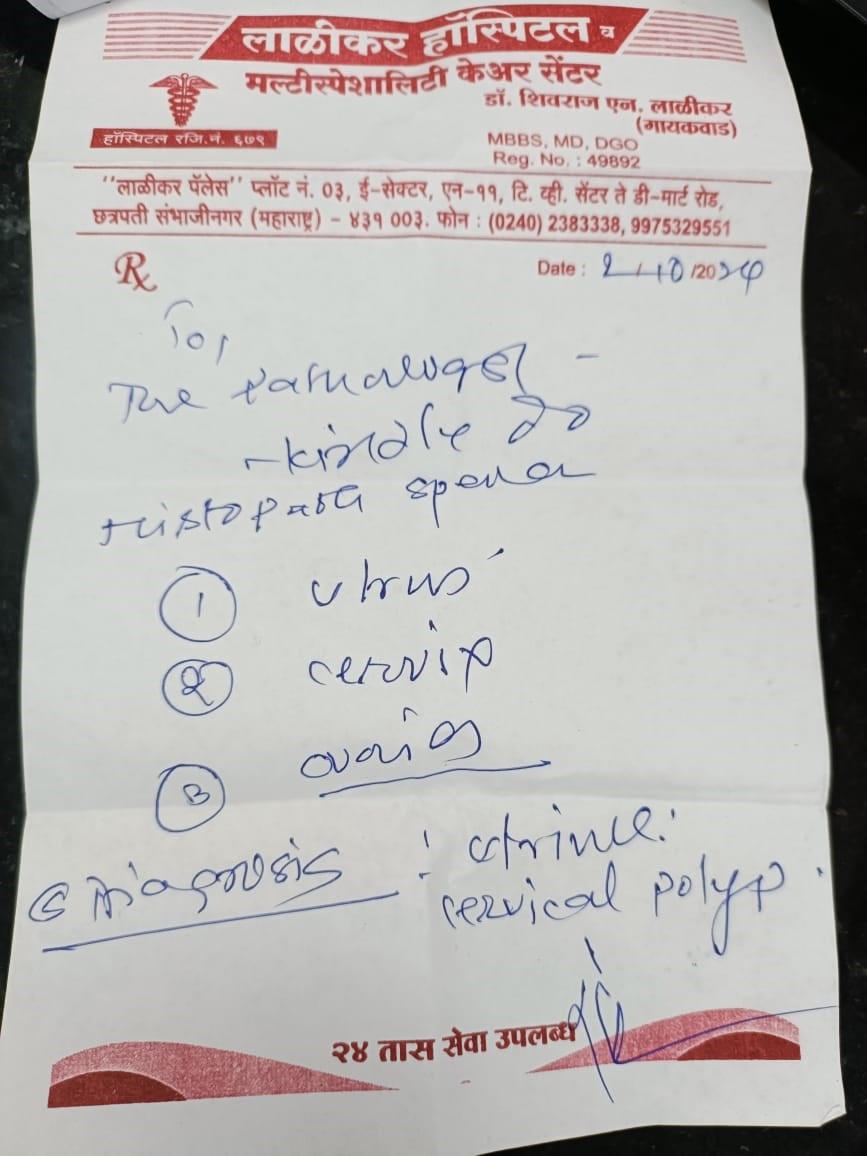 लाळीकर हॉस्पिटल व
मल्टीस्पेशालिटी केअर सेंटर
डॉ. शिवराज एन. लाळीकर
(गायकवाड)
हॉस्पिटल रजि.नं. ६७९
MBBS, MD, DGO
Reg. No. : 49892
"लाळीकर पॅलेस" प्लॉट नं. ०३, ई-सेक्टर, एन-११, टि. व्ही. सेंटर ते डी-मार्ट रोड,
छत्रपती संभाजीनगर (महाराष्ट्र) - ४३१ 003. फोन : (0240) 2383338, 9975329551
Rx
Date : 2/10/2024
To,
The Pathologist -
- kindly do
Histopath
1 utrus
2 cervix
3 ovaries
Diagnosis :
cervical polyp.
२४ तास सेवा उपलब्ध